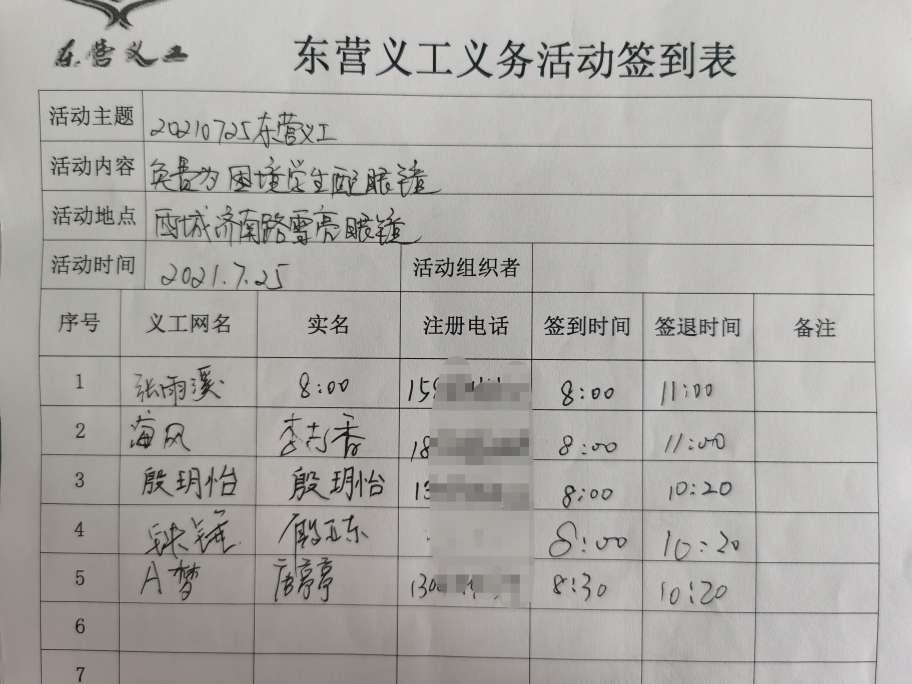 东营义工
东营义工义务活动签到表
活动主题 20210725东营义工
活动内容 免费为困境学生配眼镜
活动地点 西城济南路雪亮眼镜
活动时间 2021.7.25 活动组织者
序号 义工网名 实名 注册电话 签到时间 签退时间 备注
1 张雨溪 8:00 15 8:00 11:00
2 海风 李志香 18 8:00 11:00
3 殷玥怡 殷玥怡 13 8:00 10:20
4 8:00 10:20
5 A梦 唐亭亭 130 8:30 10:20
6
7